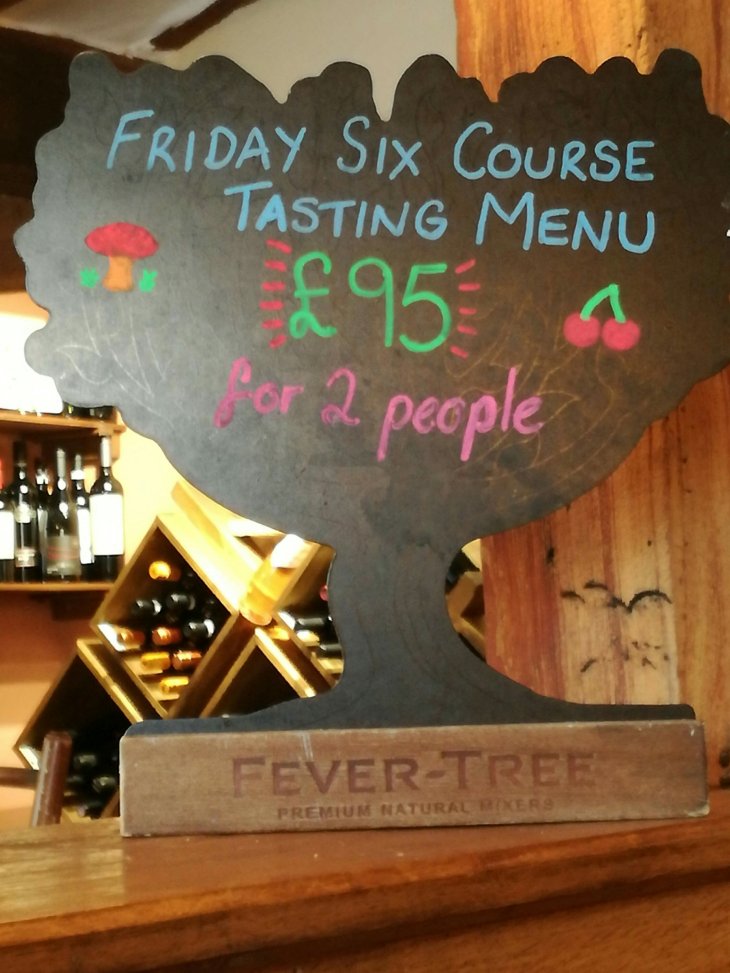 FRIDAY SIX COURSE
TASTING MENU
£95
for 2 people
FEVER-TREE
PREMIUM NATURAL MIXERS